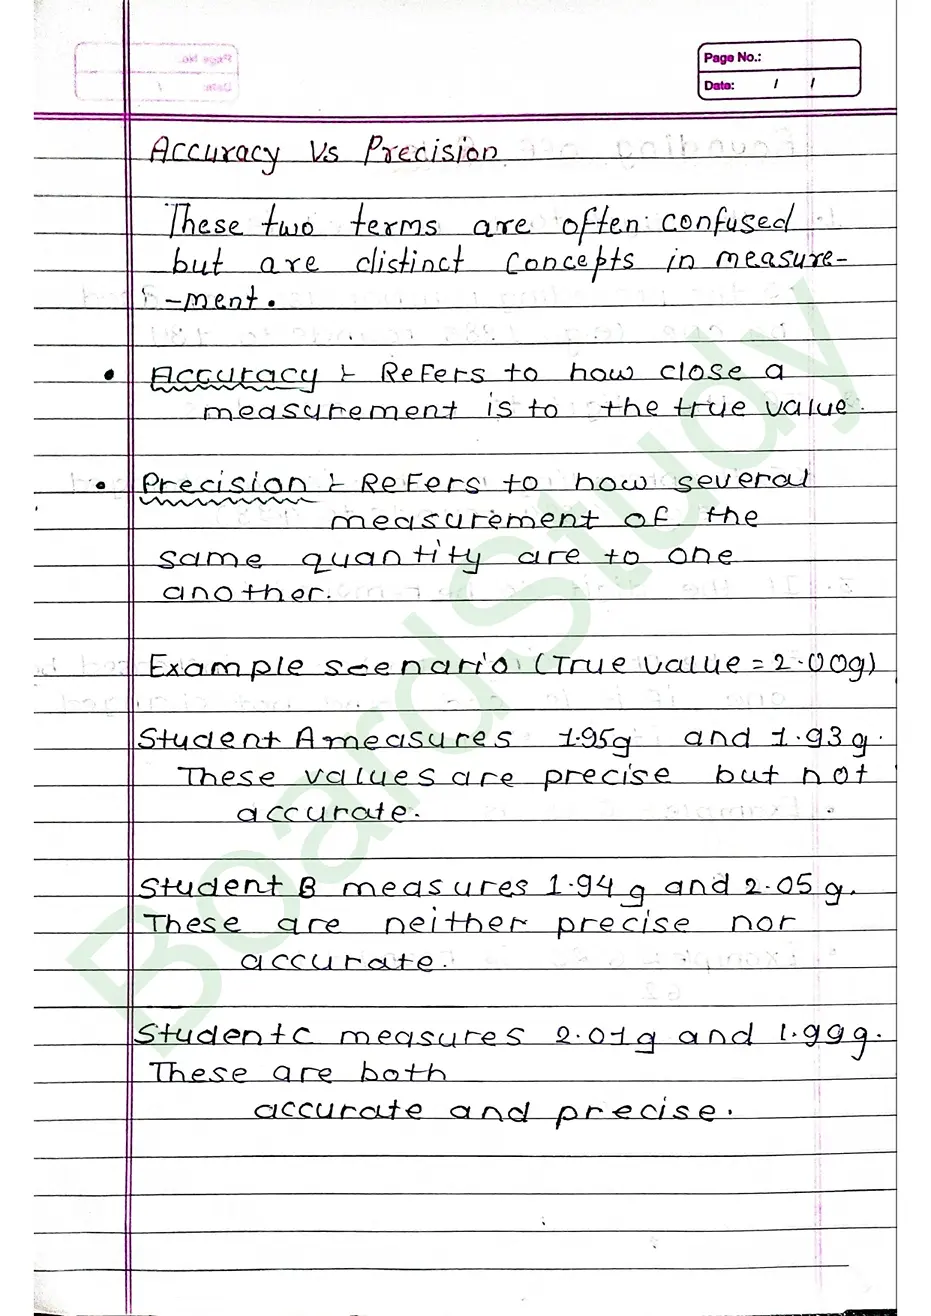 Page No.:
Date: / /
Accuracy Vs Precision
These two terms are often confused
but are distinct concepts in measure-
-ment.
• Accuracy :- Refers to how close a
measurement is to the true value.
• Precision :- Refers to how several
measurement of the
same quantity are to one
another.
Example scenario (True value = 2.00g)
Student A measures 1.95g and 1.93g.
These values are precise but not
accurate.
Student B measures 1.94g and 2.05g.
These are neither precise nor
accurate.
Student C measures 2.01g and 1.99g.
These are both
accurate and precise.
BoardStudy